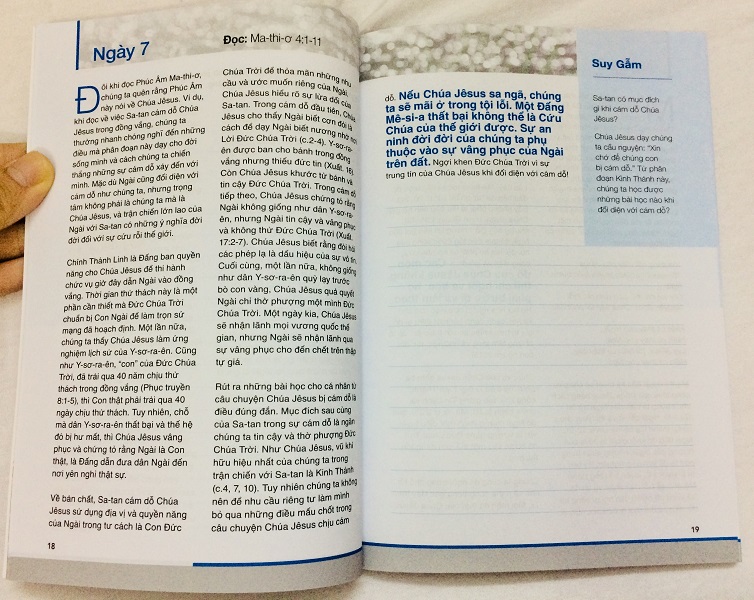 Ngày 7
Đọc: Ma-thi-ơ 4:1-11
Đôi khi đọc Phúc Âm Ma-thi-ơ,
chúng ta quên rằng Phúc Âm
này nói về Chúa Jêsus. Ví dụ,
khi đọc về việc Sa-tan cám dỗ Chúa
Jêsus trong đồng vắng, chúng ta
thường nhanh chóng nghĩ đến những
điều mà phân đoạn này dạy cho đời
sống mình và cách chúng ta chiến
thắng những sự cám dỗ xảy đến với
mình. Mặc dù Ngài cũng đối diện với
cám dỗ như chúng ta, nhưng trọng
tâm không phải là chúng ta mà là
Chúa Jêsus, và trận chiến lớn lao của
Ngài với Sa-tan có những ý nghĩa đời
đời đối với sự cứu rỗi thế giới.
Chính Thánh Linh là Đấng ban quyền
năng cho Chúa Jêsus để thi hành
chức vụ giờ đây dẫn Ngài vào đồng
vắng. Thời gian thử thách này là một
phần cần thiết mà Đức Chúa Trời
chuẩn bị Con Ngài để làm trọn sứ
mạng đã hoạch định. Một lần nữa,
chúng ta thấy Chúa Jêsus làm ứng
nghiệm lịch sử của Y-sơ-ra-ên. Cũng
như Y-sơ-ra-ên, “con” của Đức Chúa
Trời, đã trải qua 40 năm chịu thử
thách trong đồng vắng (Phục truyền
8:1-5), thì Con thật phải trải qua 40
ngày chịu thử thách. Tuy nhiên, chỗ
mà dân Y-sơ-ra-ên thất bại và thế hệ
đó bị hư mất, thì Chúa Jêsus vâng
phục và chứng tỏ rằng Ngài là Con
thật, là Đấng dẫn đưa dân Ngài đến
nơi yên nghỉ thật sự.
Về bản chất, Sa-tan cám dỗ Chúa
Jêsus sử dụng địa vị và quyền năng
của Ngài trong tư cách là Con Đức
Chúa Trời để thỏa mãn những nhu
cầu và ước muốn riêng của Ngài.
Chúa Jêsus hiểu rõ sự lừa dối của
Sa-tan. Trong cám dỗ đầu tiên, Chúa
Jêsus cho thấy Ngài biết cơn đói là
cách để dạy Ngài biết nương nhờ nơi
Lời Đức Chúa Trời (c.2-4). Y-sơ-ra-
ên được ban cho bánh trong đồng
vắng nhưng thiếu đức tin (Xuất. 16)
Còn Chúa Jêsus khước từ bánh và
tin cậy Đức Chúa Trời. Trong cám dỗ
tiếp theo, Chúa Jêsus chứng tỏ rằng
Ngài không giống như dân Y-sơ-ra-
ên, nhưng Ngài tin cậy và vâng phục
và không thử Đức Chúa Trời (Xuất.
17:2-7). Chúa Jêsus biết rằng đòi hỏi
các phép lạ là dấu hiệu của sự vô tín.
Cuối cùng, một lần nữa, không giống
như dân Y-sơ-ra-ên quỳ lạy trước
bò con vàng, Chúa Jêsus quả quyết
Ngài chỉ thờ phượng một mình Đức
Chúa Trời. Một ngày kia, Chúa Jêsus
sẽ nhận lãnh mọi vương quốc thế
gian, nhưng Ngài sẽ nhận lãnh qua
sự vâng phục cho đến chết trên thập
tự giá.
Rút ra những bài học cho cá nhân từ
câu chuyện Chúa Jêsus bị cám dỗ là
điều đúng đắn. Mục đích sau cùng
của Sa-tan trong sự cám dỗ là ngăn
chúng ta tin cậy và thờ phượng Đức
Chúa Trời. Như Chúa Jêsus, vũ khí
hữu hiệu nhất của chúng ta trong
trận chiến với Sa-tan là Kinh Thánh
(c.4, 7, 10). Tuy nhiên chúng ta không
nên để nhu cầu riêng tư làm mình
bỏ qua những điều mấu chốt trong
câu chuyện Chúa Jêsus chịu cám
18
dỗ. Nếu Chúa Jêsus sa ngã, chúng
ta sẽ mãi ở trong tội lỗi. Một Đấng
Mê-si-a thất bại không thể là Cứu
Chúa của thế giới được. Sự an
ninh đời đời của chúng ta phụ
thuộc vào sự vâng phục của Ngài
trên đất. Ngợi khen Đức Chúa Trời vì sự
trung tín của Chúa Jêsus khi đối diện với cám dỗ!
Suy Gẫm
Sa-tan có mục đích
gì khi cám dỗ Chúa
Jêsus?
Chúa Jêsus dạy chúng
ta cầu nguyện: “Xin
chớ để chúng con
bị cám dỗ.” Từ phân
đoạn Kinh Thánh này,
chúng ta học được
những bài học nào khi
đối diện với cám dỗ?
19